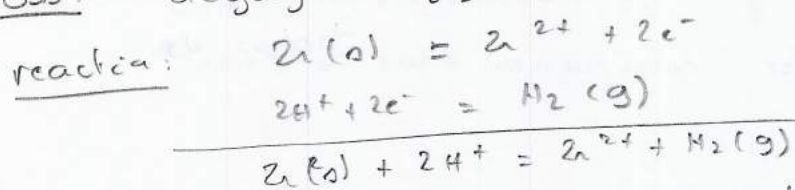 reaction: Zn(s) = Zn²⁺ + 2e⁻
2H⁺ + 2e⁻ = H₂(g)
Zn(s) + 2H⁺ = Zn²⁺ + H₂(g)